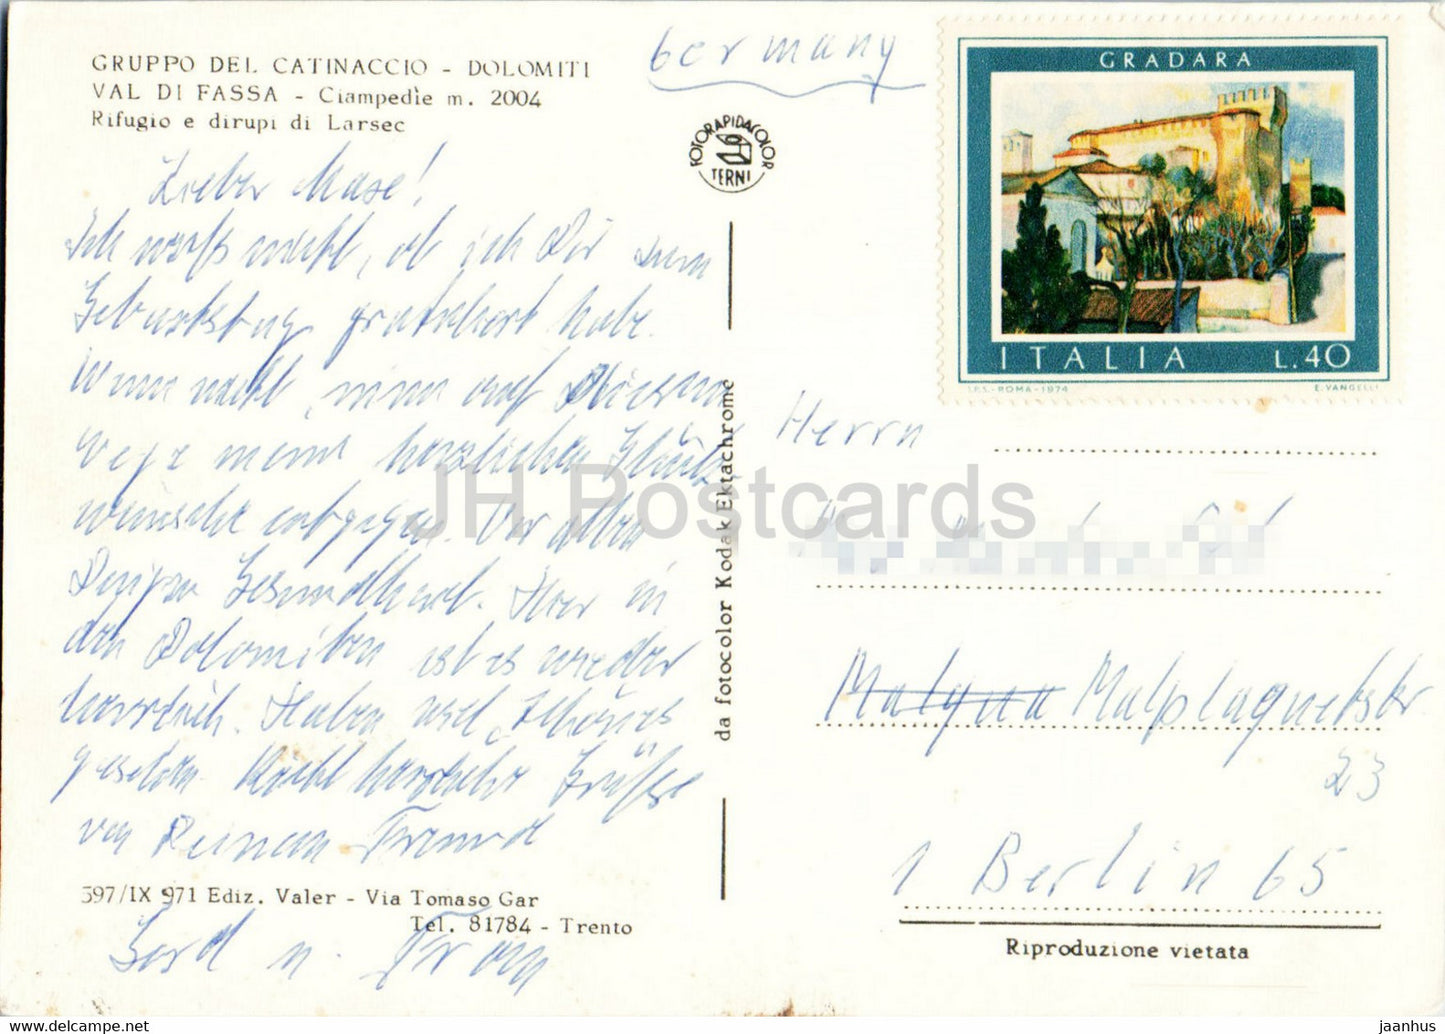 GRUPPO DEL CATINACCIO - DOLOMITI
VAL DI FASSA - Ciampedìe m. 2004
Rifugio e dirupi di Larsec
Germany
FOTORAPIDACOLOR
TERNI
GRADARA
ITALIA L.40
I.P.S.-ROMA-1974 E. VANGELLI
Lieber Maxe!
Ich weiß nicht, ob ich Dir zum
Geburtstag gratuliert habe.
Wenn nicht, nimm auf diesem
Wege meine herzlichen Glück-
wünsche entgegen. Vor allem
Gesundheit. Hier in
den Dolomiten ist es wieder
herrlich. Haben viel Schönes
gesehen. Recht herzliche Grüße
von Deinem Freund
Gerd u. Frau
da fotocolor Kodak Ektachrome
Herrn
Malplaquetstr.
23
1 Berlin 65
397/IX 971 Ediz. Valer - Via Tomaso Gar
Tel. 81784 - Trento
Riproduzione vietata
JH Postcards
hip-card.com/store/jaanhus